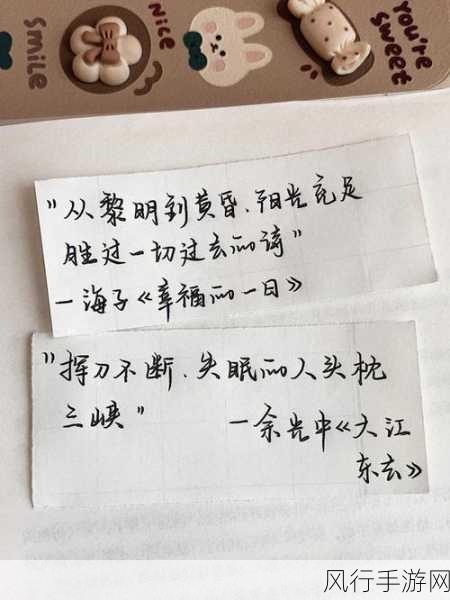 Smile
Nice
you're
sweet
"从黎明到黄昏.阳光充足
胜过一切过去的诗"
—海子《幸福的一日》
"挥刀不断.失眠的人头枕
三峡"
—余光中《大江
东去》
风行手游网